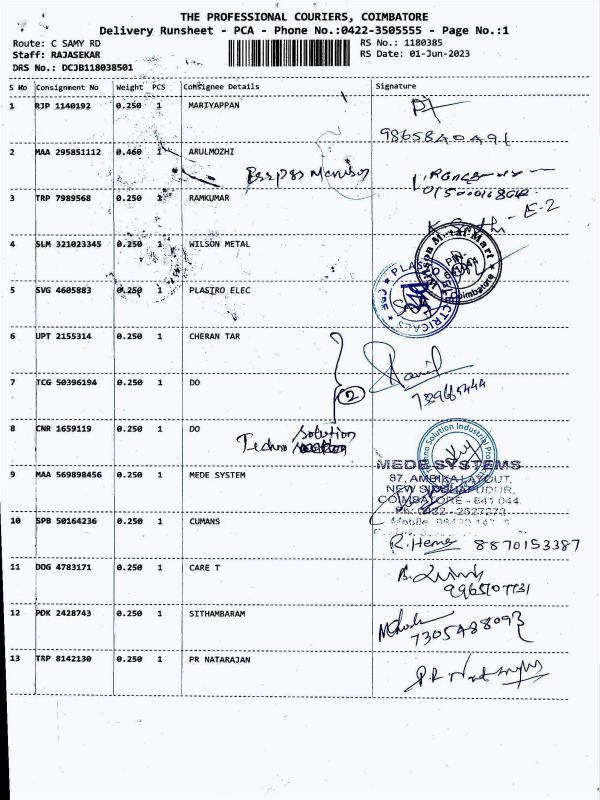 THE PROFESSIONAL COURIERS, COIMBATORE
Delivery Runsheet - PCA - Phone No.:0422-3505555 - Page No.:1
Route: C SAMY RD RS No.: 1180385
Staff: RAJASEKAR RS Date: 01-Jun-2023
DRS No.: DCJB118038501
S No Consignment No Weight PCS Consignee Details Signature
1 RJP 1140192 0.250 1 MARIYAPPAN
2 MAA 295851112 0.460 1 ARULMOZHI
3 TRP 7989568 0.250 1 RAMKUMAR
E-2
4 SLM 321023345 0.250 1 WILSON METAL
Metal Mart
Coimbatore
5 SVG 4605883 0.250 1 PLASTRO ELEC
6 UPT 2155314 0.250 1 CHERAN TAR
7 TCG 50396194 0.250 1 DO
2
8 CNR 1659119 0.250 1 DO
Techno Solution
Solution Industrial
9 MAA 569898456 0.250 1 MEDE SYSTEM
MEDE SYSTEMS
87, AMBIKA LAYOUT,
NEW SIDDHAPUDUR,
COIMBATORE - 641 044.
Mobile
10 SPB 50164236 0.250 1 CUMANS
R. Hema 8870153387
11 DDG 4783171 0.250 1 CARE T
12 PDK 2428743 0.250 1 SITHAMBARAM
7305488093
13 TRP 8142130 0.250 1 PR NATARAJAN